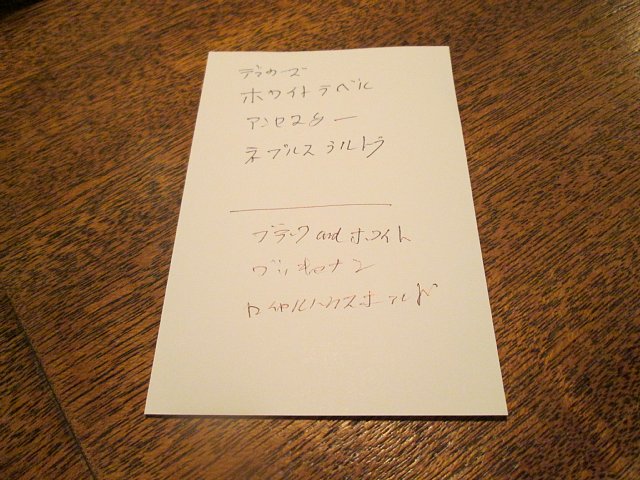 デュワーズ
ホワイトラベル
アンセスター
ネプルスウルトラ
ブラックandホワイト
ブッキャナン
ロイヤルハウスホールド